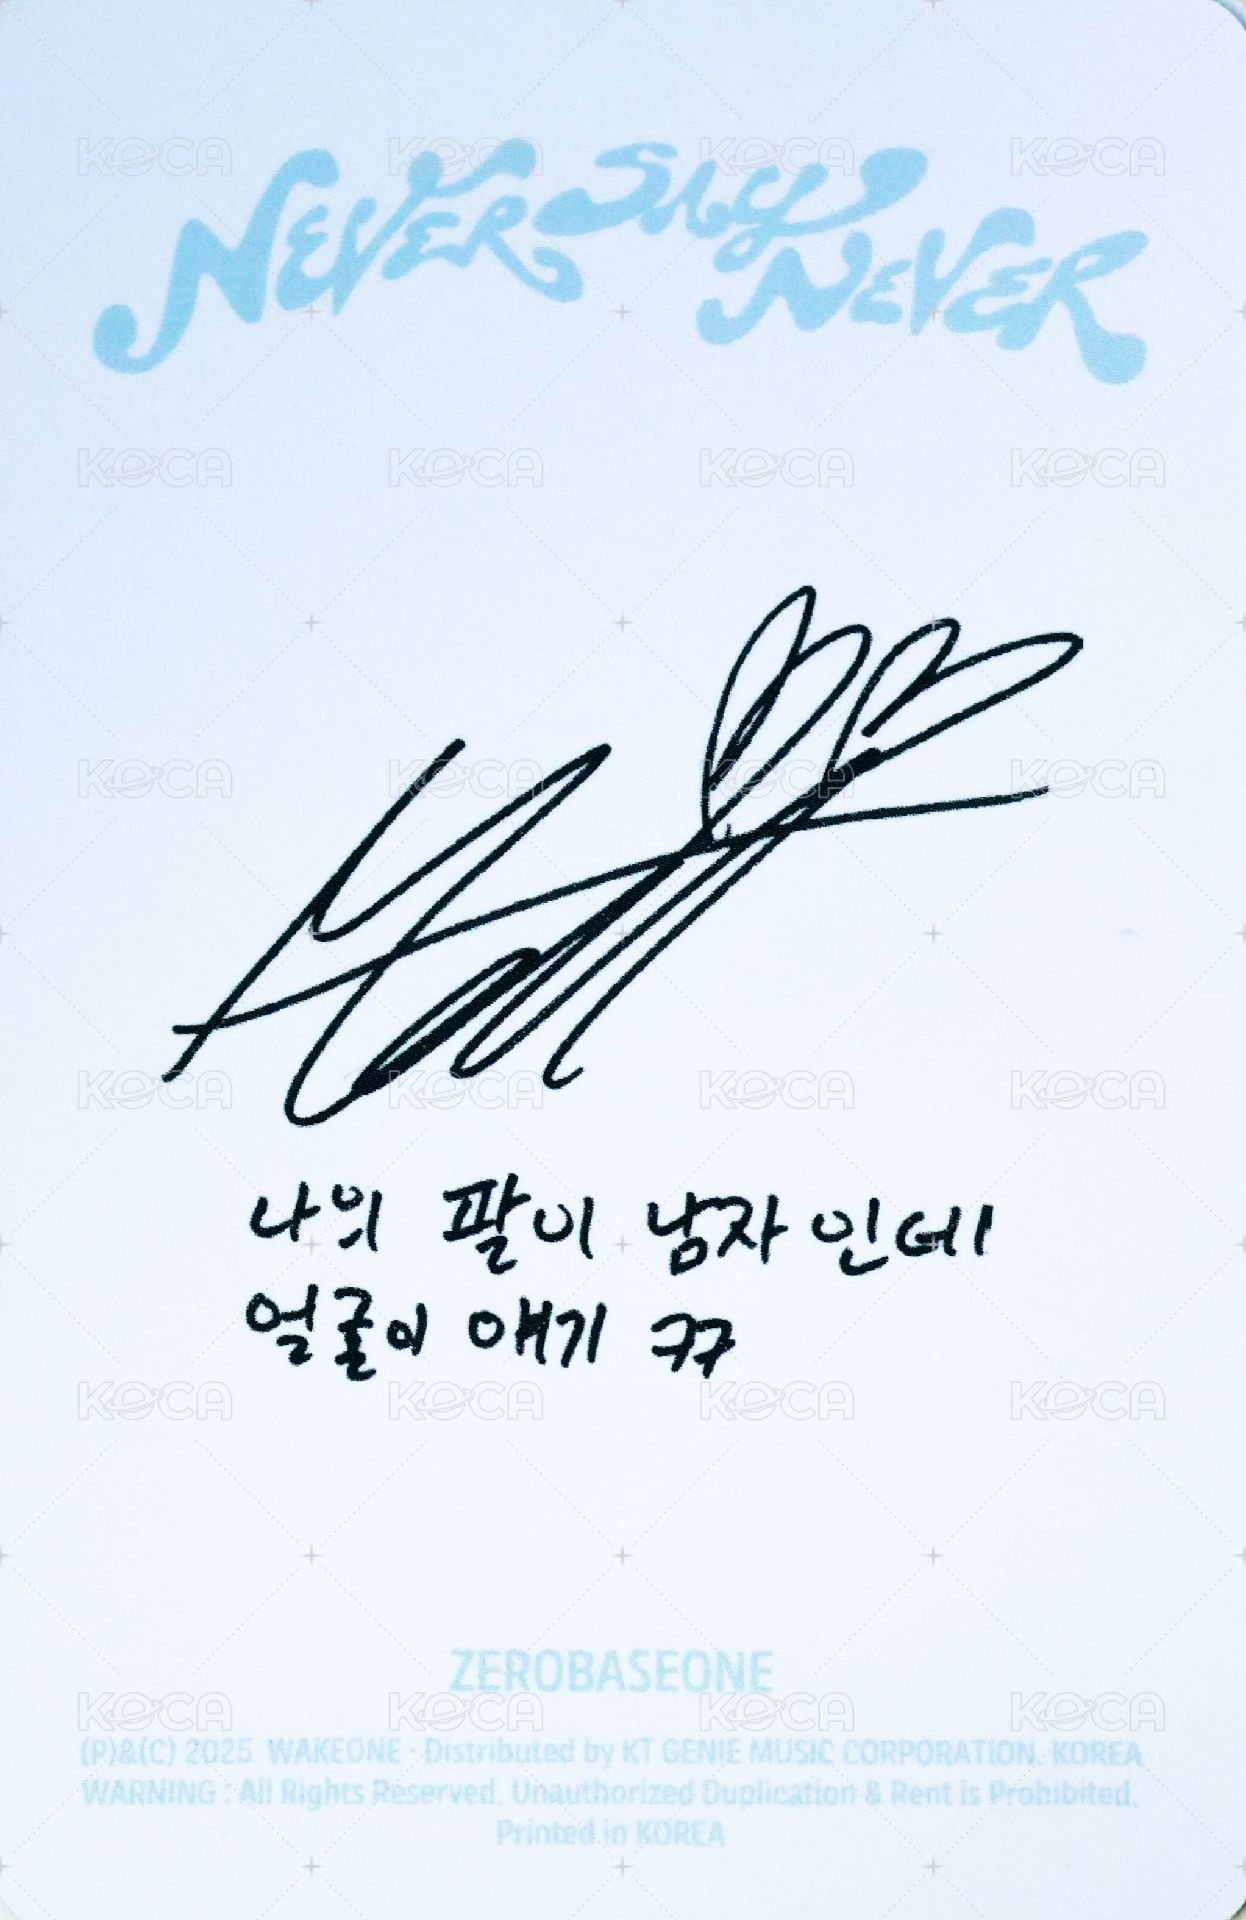 NEVER SAY NEVER
나의 팔이 남자인데
얼굴이 얘기 ㅋㅋ
ZEROBASEONE
(P)&(C) 2025 WAKEONE · Distributed by KT GENIE MUSIC CORPORATION. KOREA
WARNING : All Rights Reserved. Unauthorized Duplication & Rent is Prohibited.
Printed in KOREA
KOCA